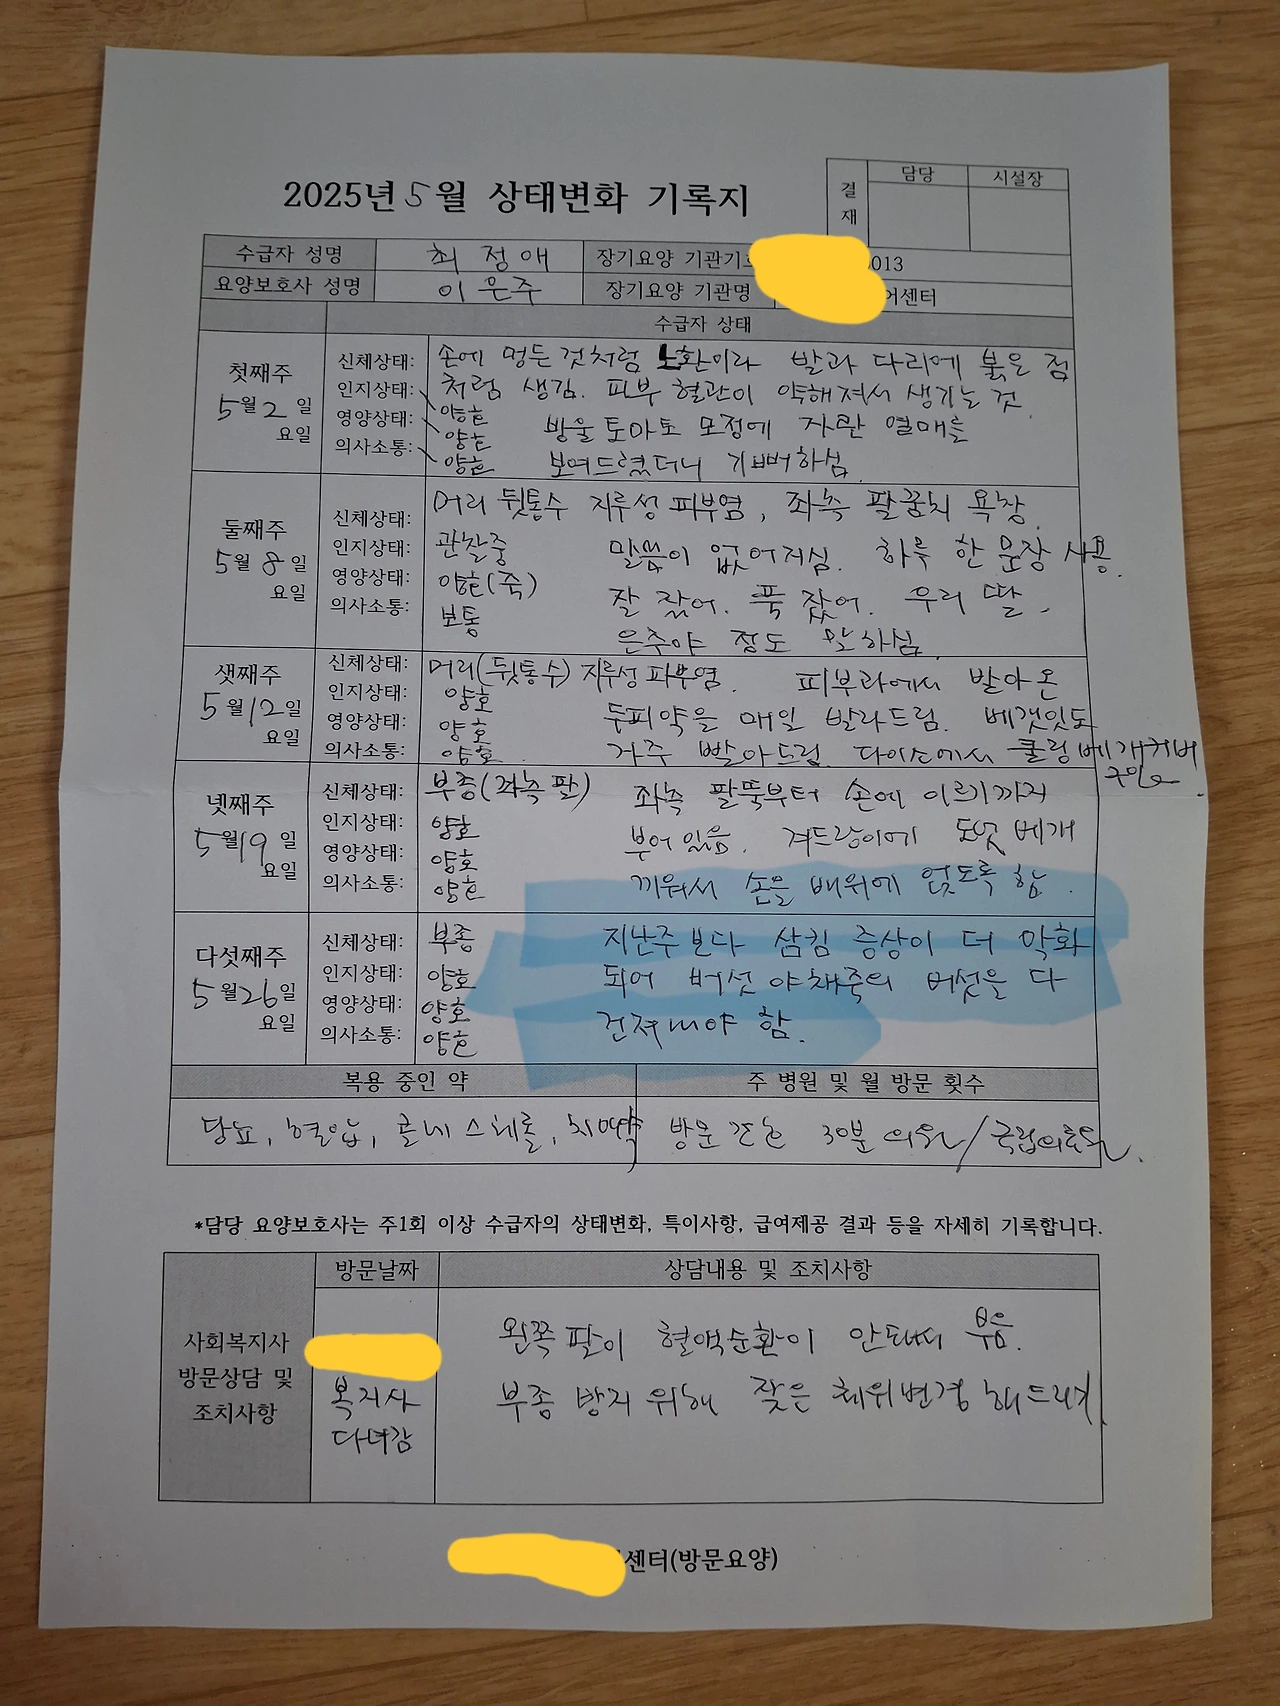 2025년 5월 상태변화 기록지
결재 담당 시설장
수급자 성명 최정애 장기요양 기관기호 013
요양보호사 성명 이은주 장기요양 기관명 어센터
수급자 상태
첫째주
5월 2일
요일
신체상태: 손에 멍든것처럼 노환이라 발과 다리에 붉은 점
처럼 생김. 피부 혈관이 약해져서 생기는 것.
인지상태: 양호 방울토마토 모정에 자란 열매를
영양상태: 양호
의사소통: 양호 보여드렸더니 기뻐하심.
둘째주
5월 8일
요일
신체상태: 머리 뒷통수 지류성 피부염, 좌측 팔꿈치 욕창.
인지상태: 관찰중 말씀이 없어지심. 하루 한 문장 사용.
영양상태: 양호(죽) 잘 잤어. 푹 잤어. 우리 딸,
의사소통: 보통
은주야 정도 말하심.
셋째주
5월 12일
요일
신체상태: 머리(뒷통수) 지류성 피부염. 피부과에서 받아온
인지상태: 양호 두피약을 매일 발라드림. 베갯잇도
영양상태: 양호
의사소통: 양호. 자주 빨아드림. 다이소에서 쿨링베개커버
구입
넷째주
5월 19일
요일
신체상태: 부종(좌측팔) 좌측 팔뚝부터 손에 이르기까지
인지상태: 양호 부어있음. 겨드랑이에 도넛 베개
영양상태: 양호
의사소통: 양호 끼워서 손을 배위에 얹도록 함.
다섯째주
5월 26일
요일
신체상태: 부종 지난주보다 삼킴 증상이 더 악화
인지상태: 양호 되어 버섯야채죽의 버섯을 다
영양상태: 양호 건져내야 함.
의사소통: 양호
복용 중인 약 주 병원 및 월 방문 횟수
당뇨, 혈압, 콜레스테롤, 치매약 방문간호 30분 의원/국립의료원.
*담당 요양보호사는 주1회 이상 수급자의 상태변화, 특이사항, 급여제공 결과 등을 자세히 기록합니다.
방문날짜 상담내용 및 조치사항
사회복지사
방문상담 및
조치사항
복지사
다녀감
왼쪽팔이 혈액순환이 안돼서 부음.
부종 방지 위해 잦은 체위변경 해드리기.
센터(방문요양)